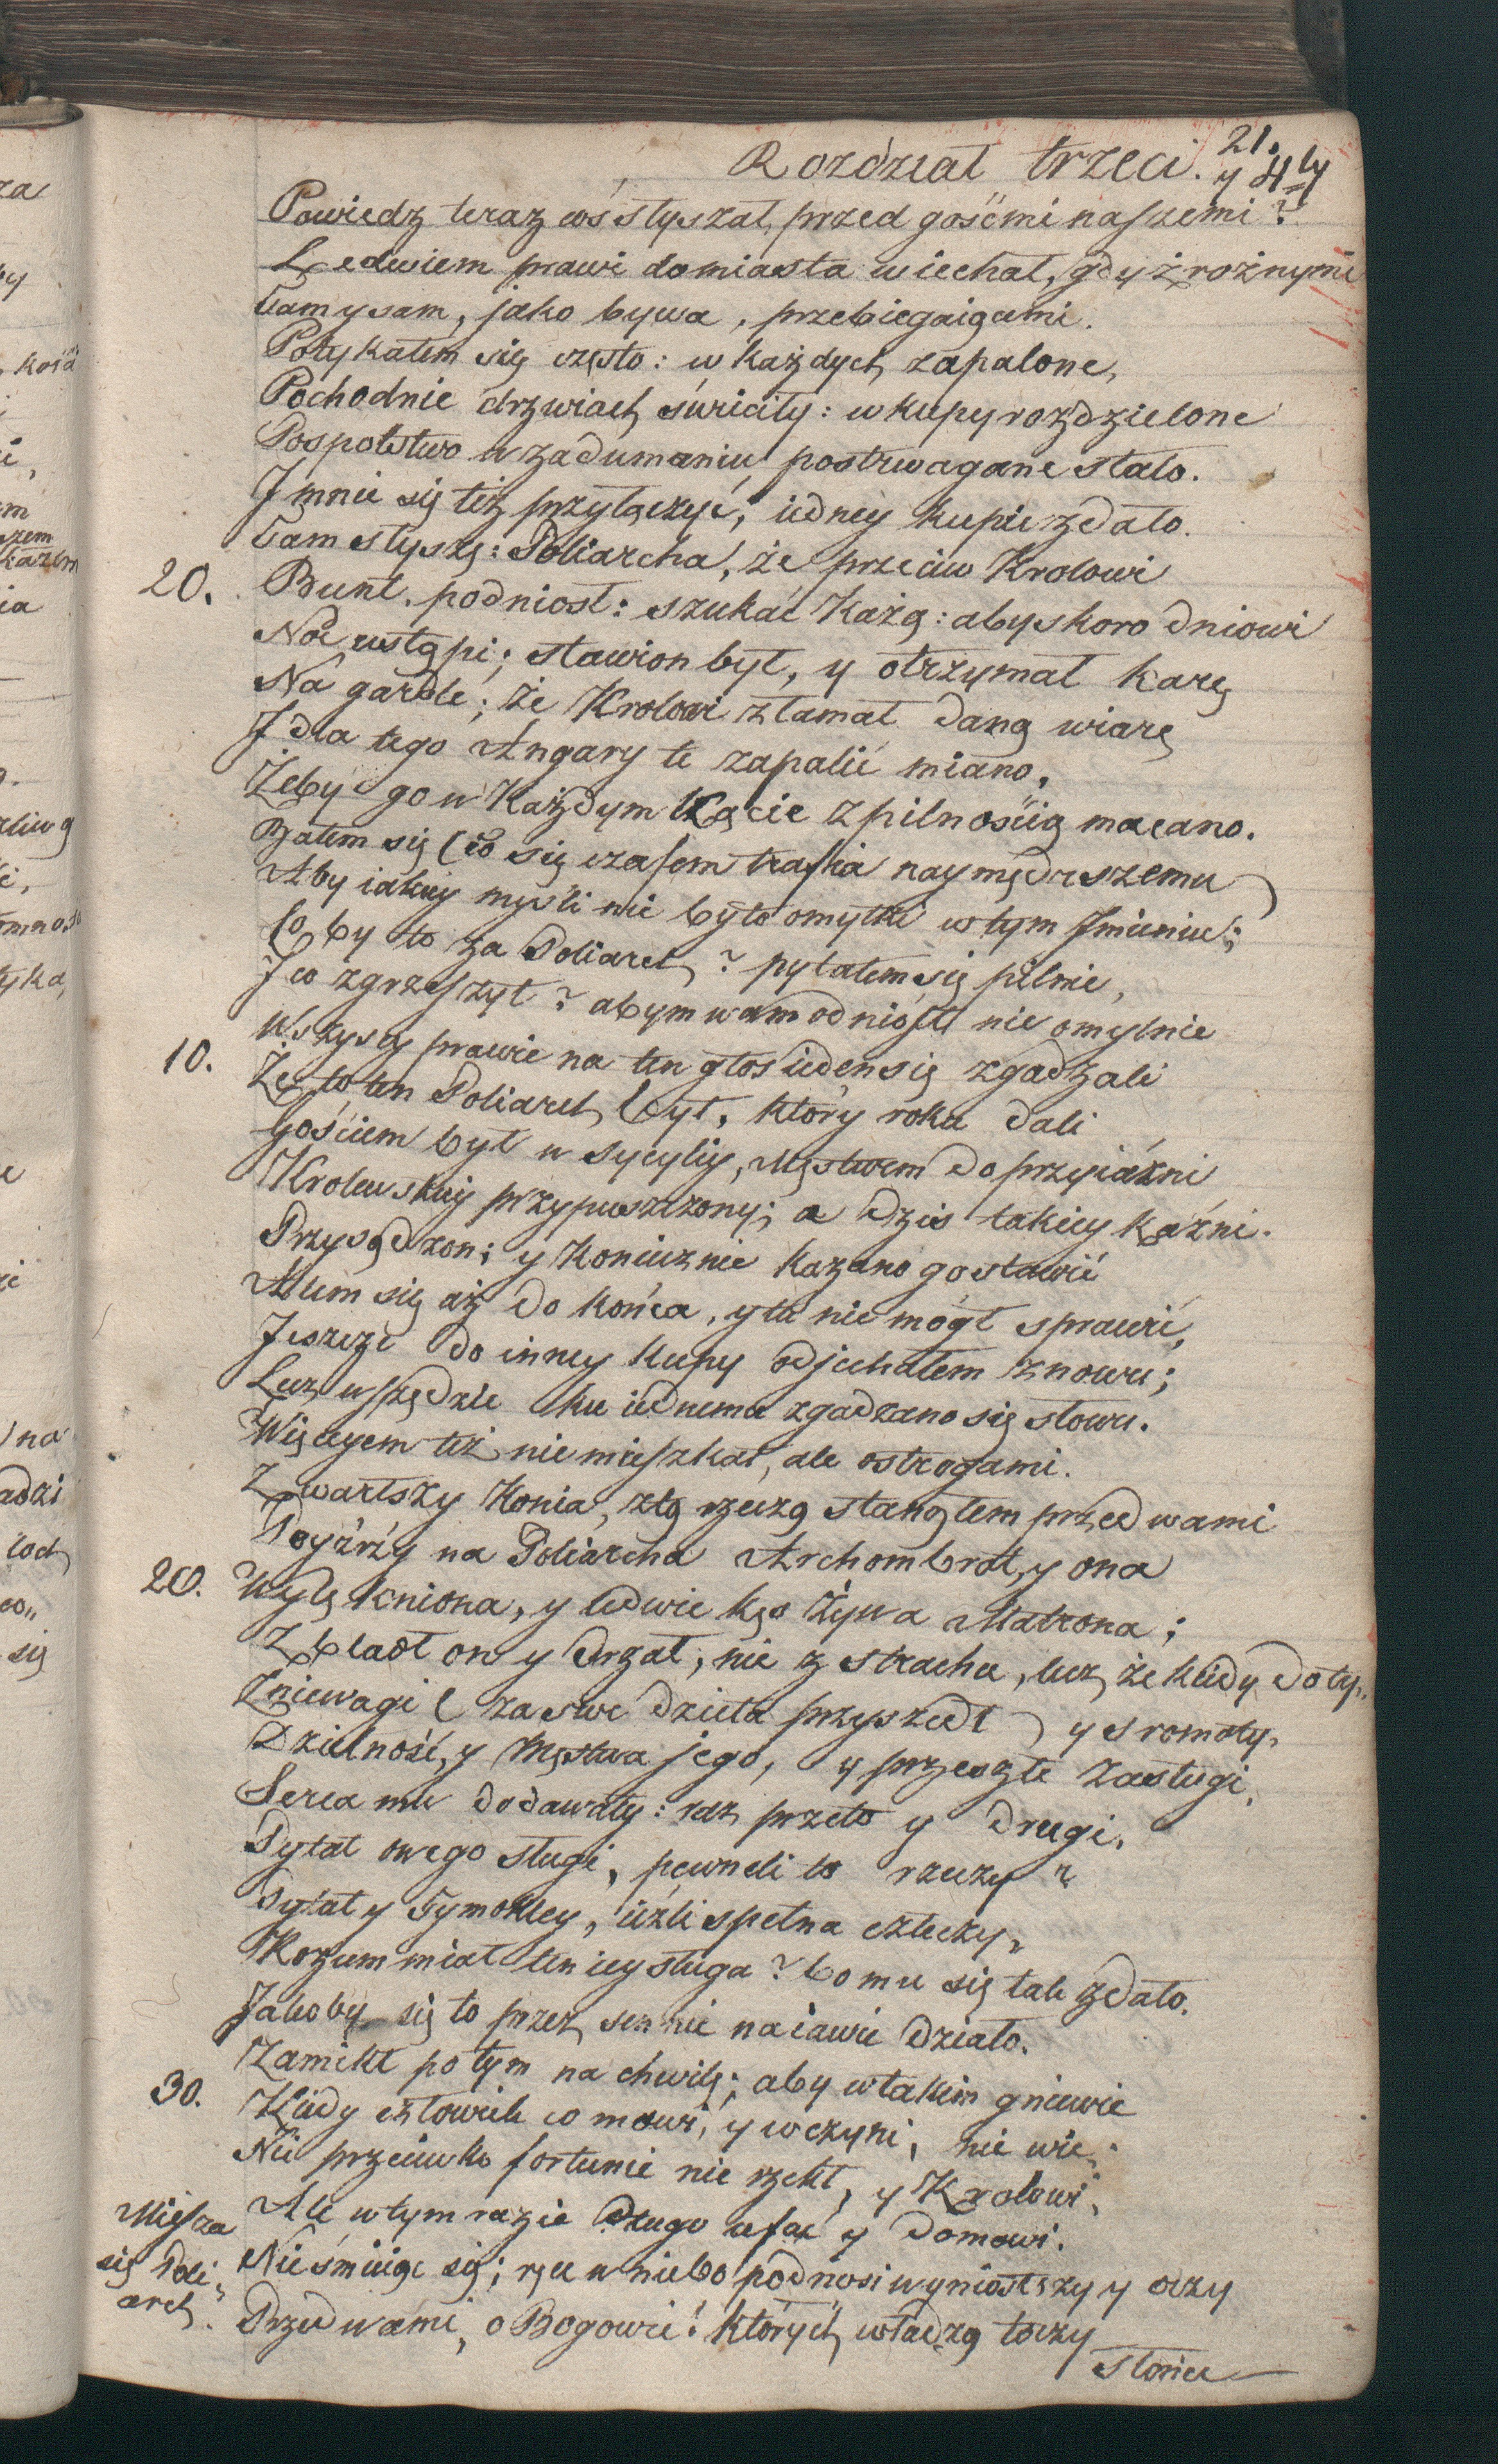 21.
Rozdział trzeci. y 4ty
Powiedz teraz coś słyszał, przed gośćmi naszemi?
Ledwiem prawi do miasta wiechał, gdy z rożnymi
Tam y sam, jako bywa, przebiegaiącemi.
Potykałem się często: w każdych zapalone,
Pochodnie drzwiach świeciły: w kupy rozdzielone
Pospolstwo w zadumaniu postrwagane stało.
J mnie się też przyłączyć, iedney kupie zdało.
Tam słyszę: Poliarcha, że przeciw Krolowi
20. Bunt, podniosł: szukać Każą: aby skoro dniowi
Noc ustąpi; stawion był, y otrzymał karę
Na gardle; że Krolowi złamał daną wiarę
J dla tego Angary te zapalić miano,
Żeby go w Każdym Kącie z pilnością macano.
Bałem się (co się czasem trafia naymędrszemu)
Aby iakiey myśli nie było omyłki w tym Jmieniu;
Co by to za Poliarch? pytałem się pilnie,
J co zgrzeszył? abym wam odniosł nie omylnie
10. Wszyscy prawie na ten głos ieden się zgadzali
Że to ten Poliarch był, który roku dali
Gościem był w Sycyliy, Męstwem do przyiaźni
Krolewskiey przypuszczony; a dziś takiey kaźni.
Przysądzon; y koniecznie kazano go stawić
Alem się aż do końca, y tu nie mógł sprawić,
Jeszcze do inney kupy odjechałem znowu;
Lecz wszędzie ku iednemu zgadzano się słowu.
Więceyem też nie mieszkał, ale ostrogami.
Zwartszy Konia, z tą rzeczą stanąłem przed wami
Poyźrzy na Poliarcha Archombrot, y ona
20. Wylękniona, y ledwie kęs żywa Matrona;
Zbladł on y drżał, nie z strachu, lecz, że kiedy do ty„
Zniewagi (za swe dzieła przyszedł) y sromoty,
Dzielność, y Męstwa jego, y przeszłe zasługi,
Serca mu dodawały: raz, przeto y drugi,
Pytał owego sługi, pewneli to rzeczy?
Pytał y Tymokley, ieźli spełna człeczy,
Rozum miał ten iey sługa? bo mu się tak zdało.
Jakoby się to przez sen nie na iawie działo.
Zamikł po tym na chwilę; aby w takim gniewie
30. Kiedy człowiek co mowi, y co czyni, nie wie.
Nic przeciwko fortunie nie rzekł, y Krolowi,
Ale w tym razie długo ufać y domowi.
Miesza się Poli„arch. Nie śmieiąc się; ręce w niebo podnosi wyniosłszy y oczy
Przed wami, o Bogowie! których władzą toczy
Słońce